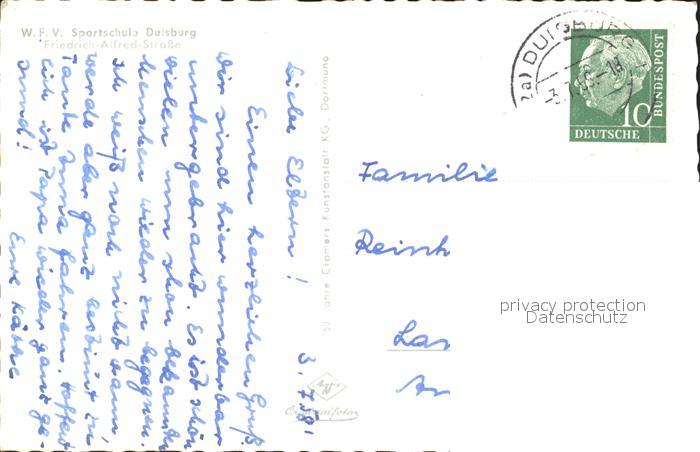 W. F. V. Sportschule Duisburg
Friedrich-Alfred-Straße
Liebe Eltern! 3. 7. 58.
Einen herzlichen Gruß
Wir sind hier wunderbar
untergebracht. Es ist schön
vielen nun schon bekannten
Menschen wieder zu begegnen.
Ich weiß noch nicht wann
werde aber ganz bestimmt zu
Tante Anna fahren. Hoffent-
lich ist Papa wieder ganz ge-
sund!
Eure Käthe
50 Jahre Cramers Kunstanstalt KG., Dortmund
Originalfoto
DUISBURG
DEUTSCHE
BUNDESPOST
10
Familie
Reinh
privacy protection
Datenschutz